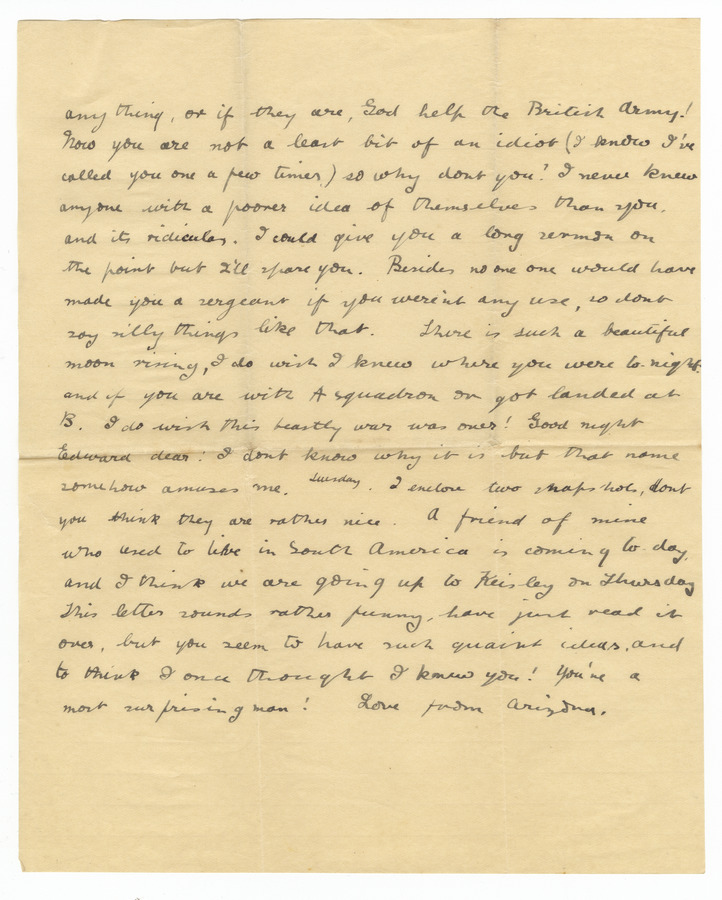 any thing, or if they are, God help the British Army!
Now you are not a least bit of an idiot (I know I've
called you one a few times) so why dont you? I never knew
anyone with a poorer idea of themselves than you,
and its ridiculas. I could give you a long sermon on
the point but I'll spare you. Besides no one one would have
made you a sergeant if you weren't any use, so dont
say silly things like that. There is such a beautiful
moon rising, I do wish I knew where you were to-night.
and if you are with A squadron or got landed at
B. I do wish this beastly war was over! Good night
Edward dear! I dont know why it is but that name
somehow amuses me. Tuesday. I enclose two snapshots, dont
you think they are rather nice. A friend of mine
who used to live in South America is coming to-day,
and I think we are going up to Keisley on Thursday
This letter sounds rather funny, have just read it
over, but you seem to have such quaint ideas, and
to think I once thought I knew you! You're a
most surprising man! Love from